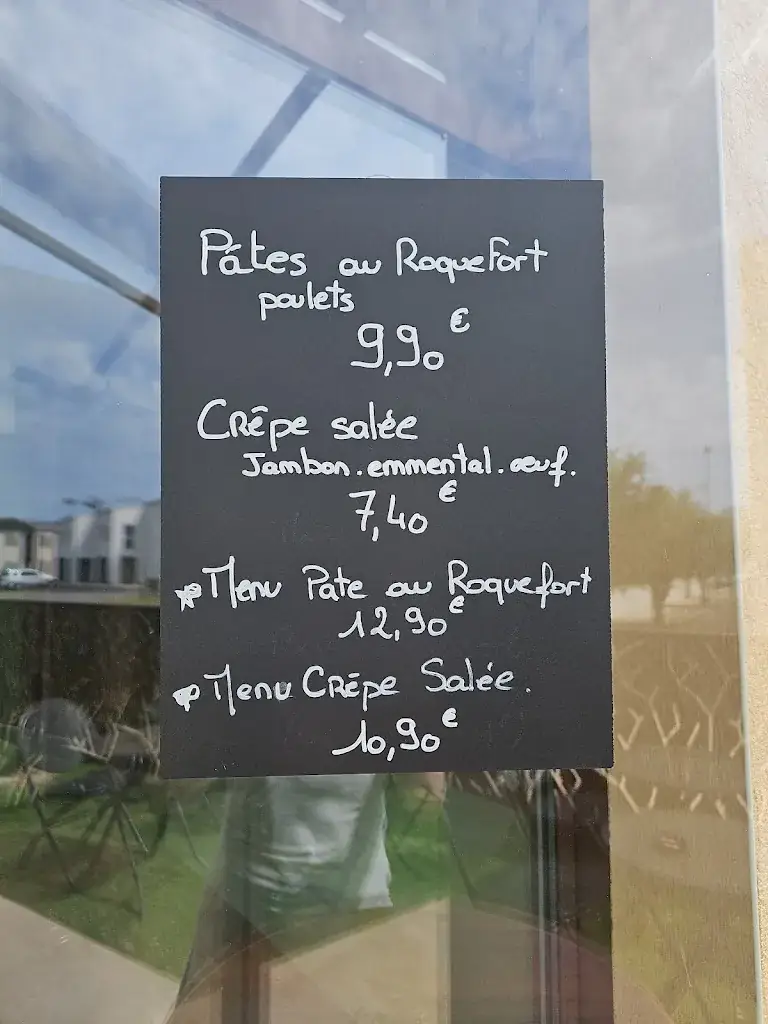 Pâtes au Roquefort
poulets
9,90€
Crêpe salée
Jambon.emmental.œuf.
7,40€
Menu Pate au Roquefort
12,90€
Menu Crêpe Salée.
10,90€